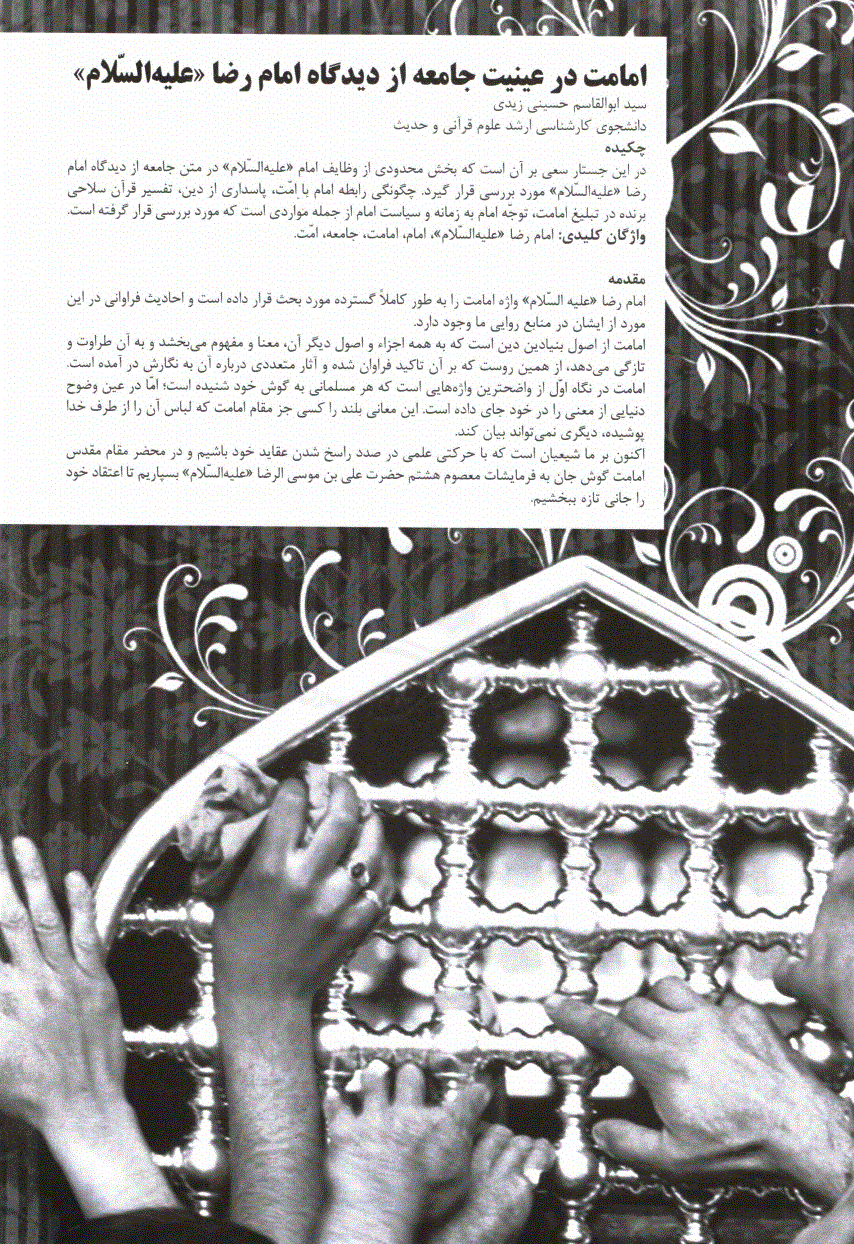 امامت در عینیت جامعه از دیدگاه امام رضا «علیه‌السّلام»
سید ابوالقاسم حسینی زیدی
دانشجوی کارشناسی ارشد علوم قرآنی و حدیث
چکیده
در این جستار سعی بر آن است که بخش محدودی از وظایف امام «علیه‌السّلام» در متن جامعه از دیدگاه امام
رضا «علیه‌السّلام» مورد بررسی قرار گیرد. چگونگی رابطه امام با امّت، پاسداری از دین، تفسیر قرآن سلاحی
برنده در تبلیغ امامت، توجّه امام به زمانه و سیاست امام از جمله مواردی است که مورد بررسی قرار گرفته است.
واژگان کلیدی: امام رضا «علیه‌السّلام»، امام، امامت، جامعه، امّت.
مقدمه
امام رضا «علیه السّلام» واژه امامت را به طور کاملاً گسترده مورد بحث قرار داده است و احادیث فراوانی در این
مورد از ایشان در منابع روایی ما وجود دارد.
امامت از اصول بنیادین دین است که به همه اجزاء و اصول دیگر آن، معنا و مفهوم می‌بخشد و به آن طراوت و
تازگی می‌دهد، از همین روست که بر آن تاکید فراوان شده و آثار متعددی درباره آن به نگارش در آمده است.
امامت در نگاه اوّل از واضحترین واژه‌هایی است که هر مسلمانی به گوش خود شنیده است؛ امّا در عین وضوح
دنیایی از معنی را در خود جای داده است. این معانی بلند را کسی جز مقام امامت که لباس آن را از طرف خدا
پوشیده، دیگری نمی‌تواند بیان کند.
اکنون بر ما شیعیان است که با حرکتی علمی در صدد راسخ شدن عقاید خود باشیم و در محضر مقام مقدس
امامت گوش جان به فرمایشات معصوم هشتم حضرت علی بن موسی الرضا «علیه‌السّلام» بسپاریم تا اعتقاد خود
را جانی تازه ببخشیم.